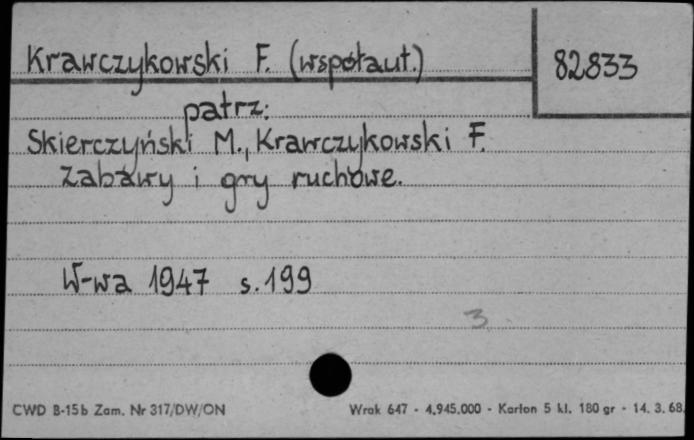 Krawczykowski F. (współaut.)
82833
patrz:
Skierczyński M., Krawczykowski F.
Zabawy i gry ruchowe.
W-wa 1947 s. 199
3
CWD B-15b Zam. Nr 317/DW/ON
Wrak 647 - 4.945.000 - Karton 5 kl. 180 gr - 14. 3. 68.